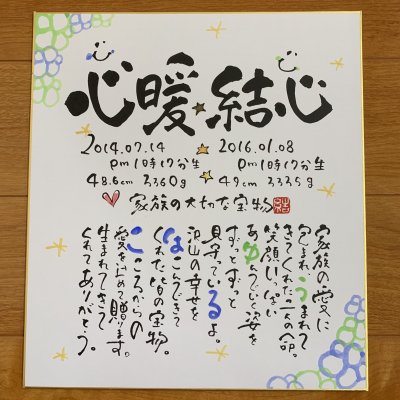 心暖 結心
2014.07.14 2016.01.08
pm1時17分生 pm1時17分生
48.6cm 3360g 49cm 3335g
家族の大切な宝物
家族の愛に
包まれうまれて
きてくれた二人の命。
笑顔いっぱい
あゆんでいく姿を
ずっとずっと
見守っているよ。
沢山の幸せを
はこんできて
くれた の宝物。
こころからの
愛を込めて贈ります。
生まれてきて
くれてありがとう。